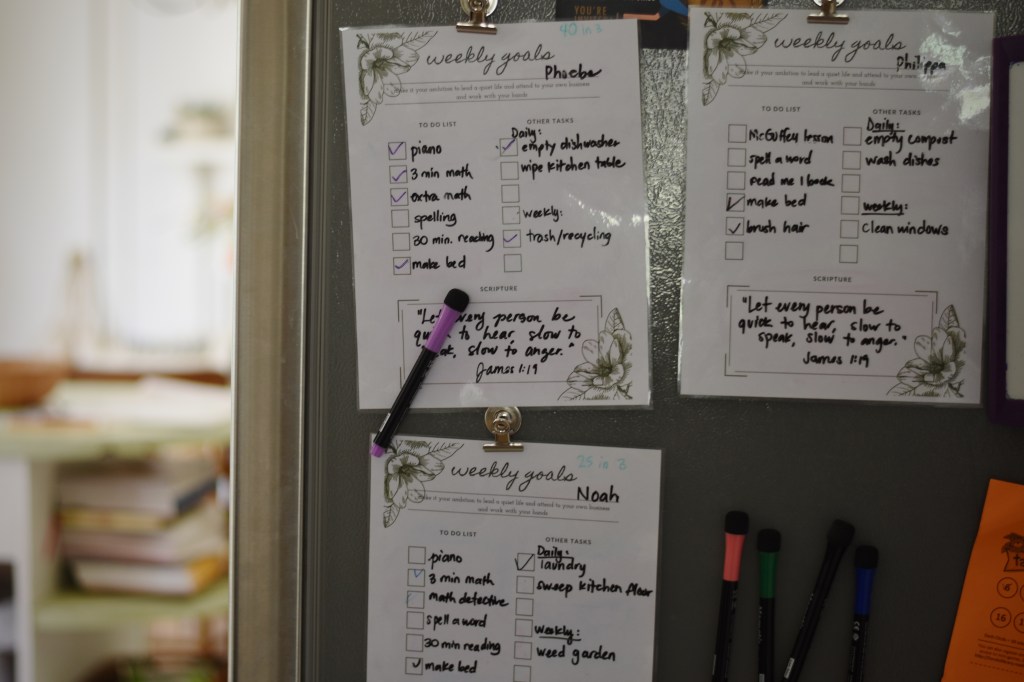 YOU'RE
40 in 3
weekly goals
Phoebe
Make it your ambition to lead a quiet life and attend to your own business
and work with your hands
TO DO LIST
piano
3 min math
extra math
spelling
30 min. reading
make bed
OTHER TASKS
Daily:
empty dishwasher
wipe kitchen table
weekly:
trash/recycling
SCRIPTURE
"Let every person be
to hear, slow to
slow to anger."
James 1:19
weekly goals
Philippa
Make it your ambition to lead a quiet life and attend to your own
and work with your hands
TO DO LIST
McGuffey lesson
spell a word
read me 1 book
make bed
brush hair
OTHER TASKS
Daily:
empty compost
wash dishes
weekly:
clean windows
SCRIPTURE
"Let every person be
quick to hear, slow to
speak, slow to anger."
James 1:19
25 in 3
weekly goals
Noah
Make it your ambition to lead a quiet life and attend to your own business
and work with your hands
TO DO LIST
piano
3 min math
math detective
spell a word
30 min reading
make bed
OTHER TASKS
Daily:
laundry
sweep kitchen floor
Weekly:
weed garden
6
16